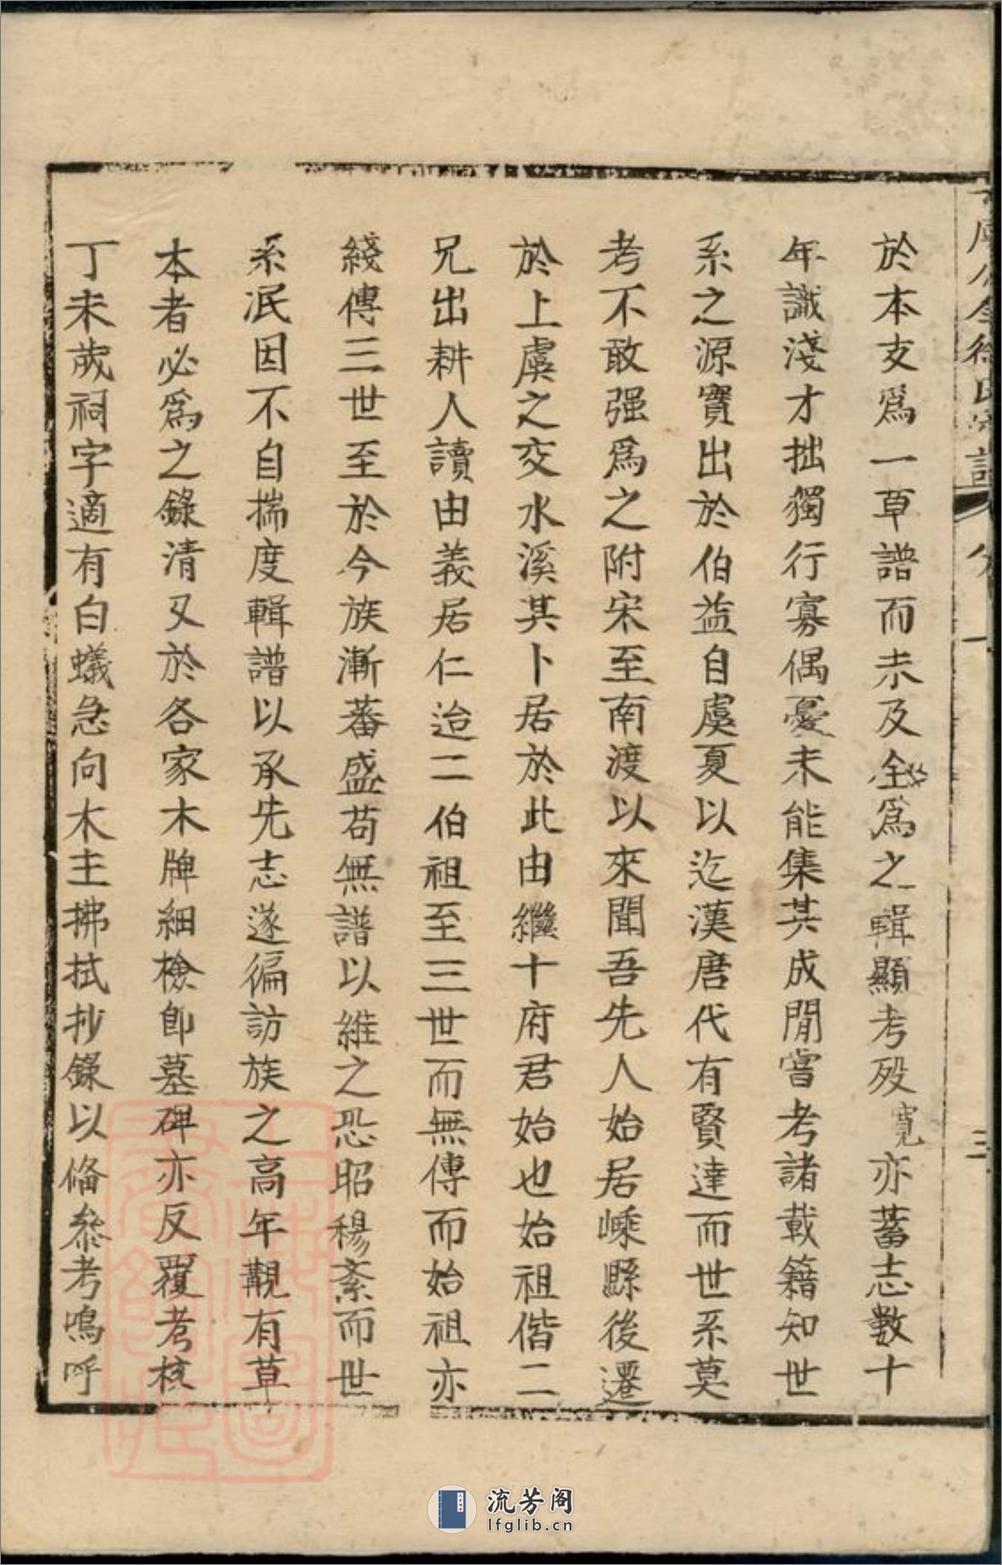 於本支爲一草譜而未及全爲之輯顯考歿寛亦蓄志數十
年識淺才拙獨行寡偶憂未能集其成閒嘗考諸載籍知世
系之源實出於伯益自虞夏以迄漢唐代有賢達而世系莫
考不敢强爲之附宋至南渡以來聞吾先人始居嵊縣後遷
於上虞之交水溪其卜居於此由繼十府君始也始祖偕二
兄出耕人讀由義居仁迨二伯祖至三世而無傳而始祖亦
綫傳三世至於今族漸蕃盛苟無譜以維之恐昭穆紊而世
系泯因不自揣度輯譜以承先志遂徧訪族之高年觀有草
本者必爲之錄清又於各家木牌細檢卽墓碑亦反覆考核
丁未歲祠字適有白蟻急向木主拂拭抄錄以備叅考嗚呼
徐氏宗譜
流芳阁
lfglib.cn